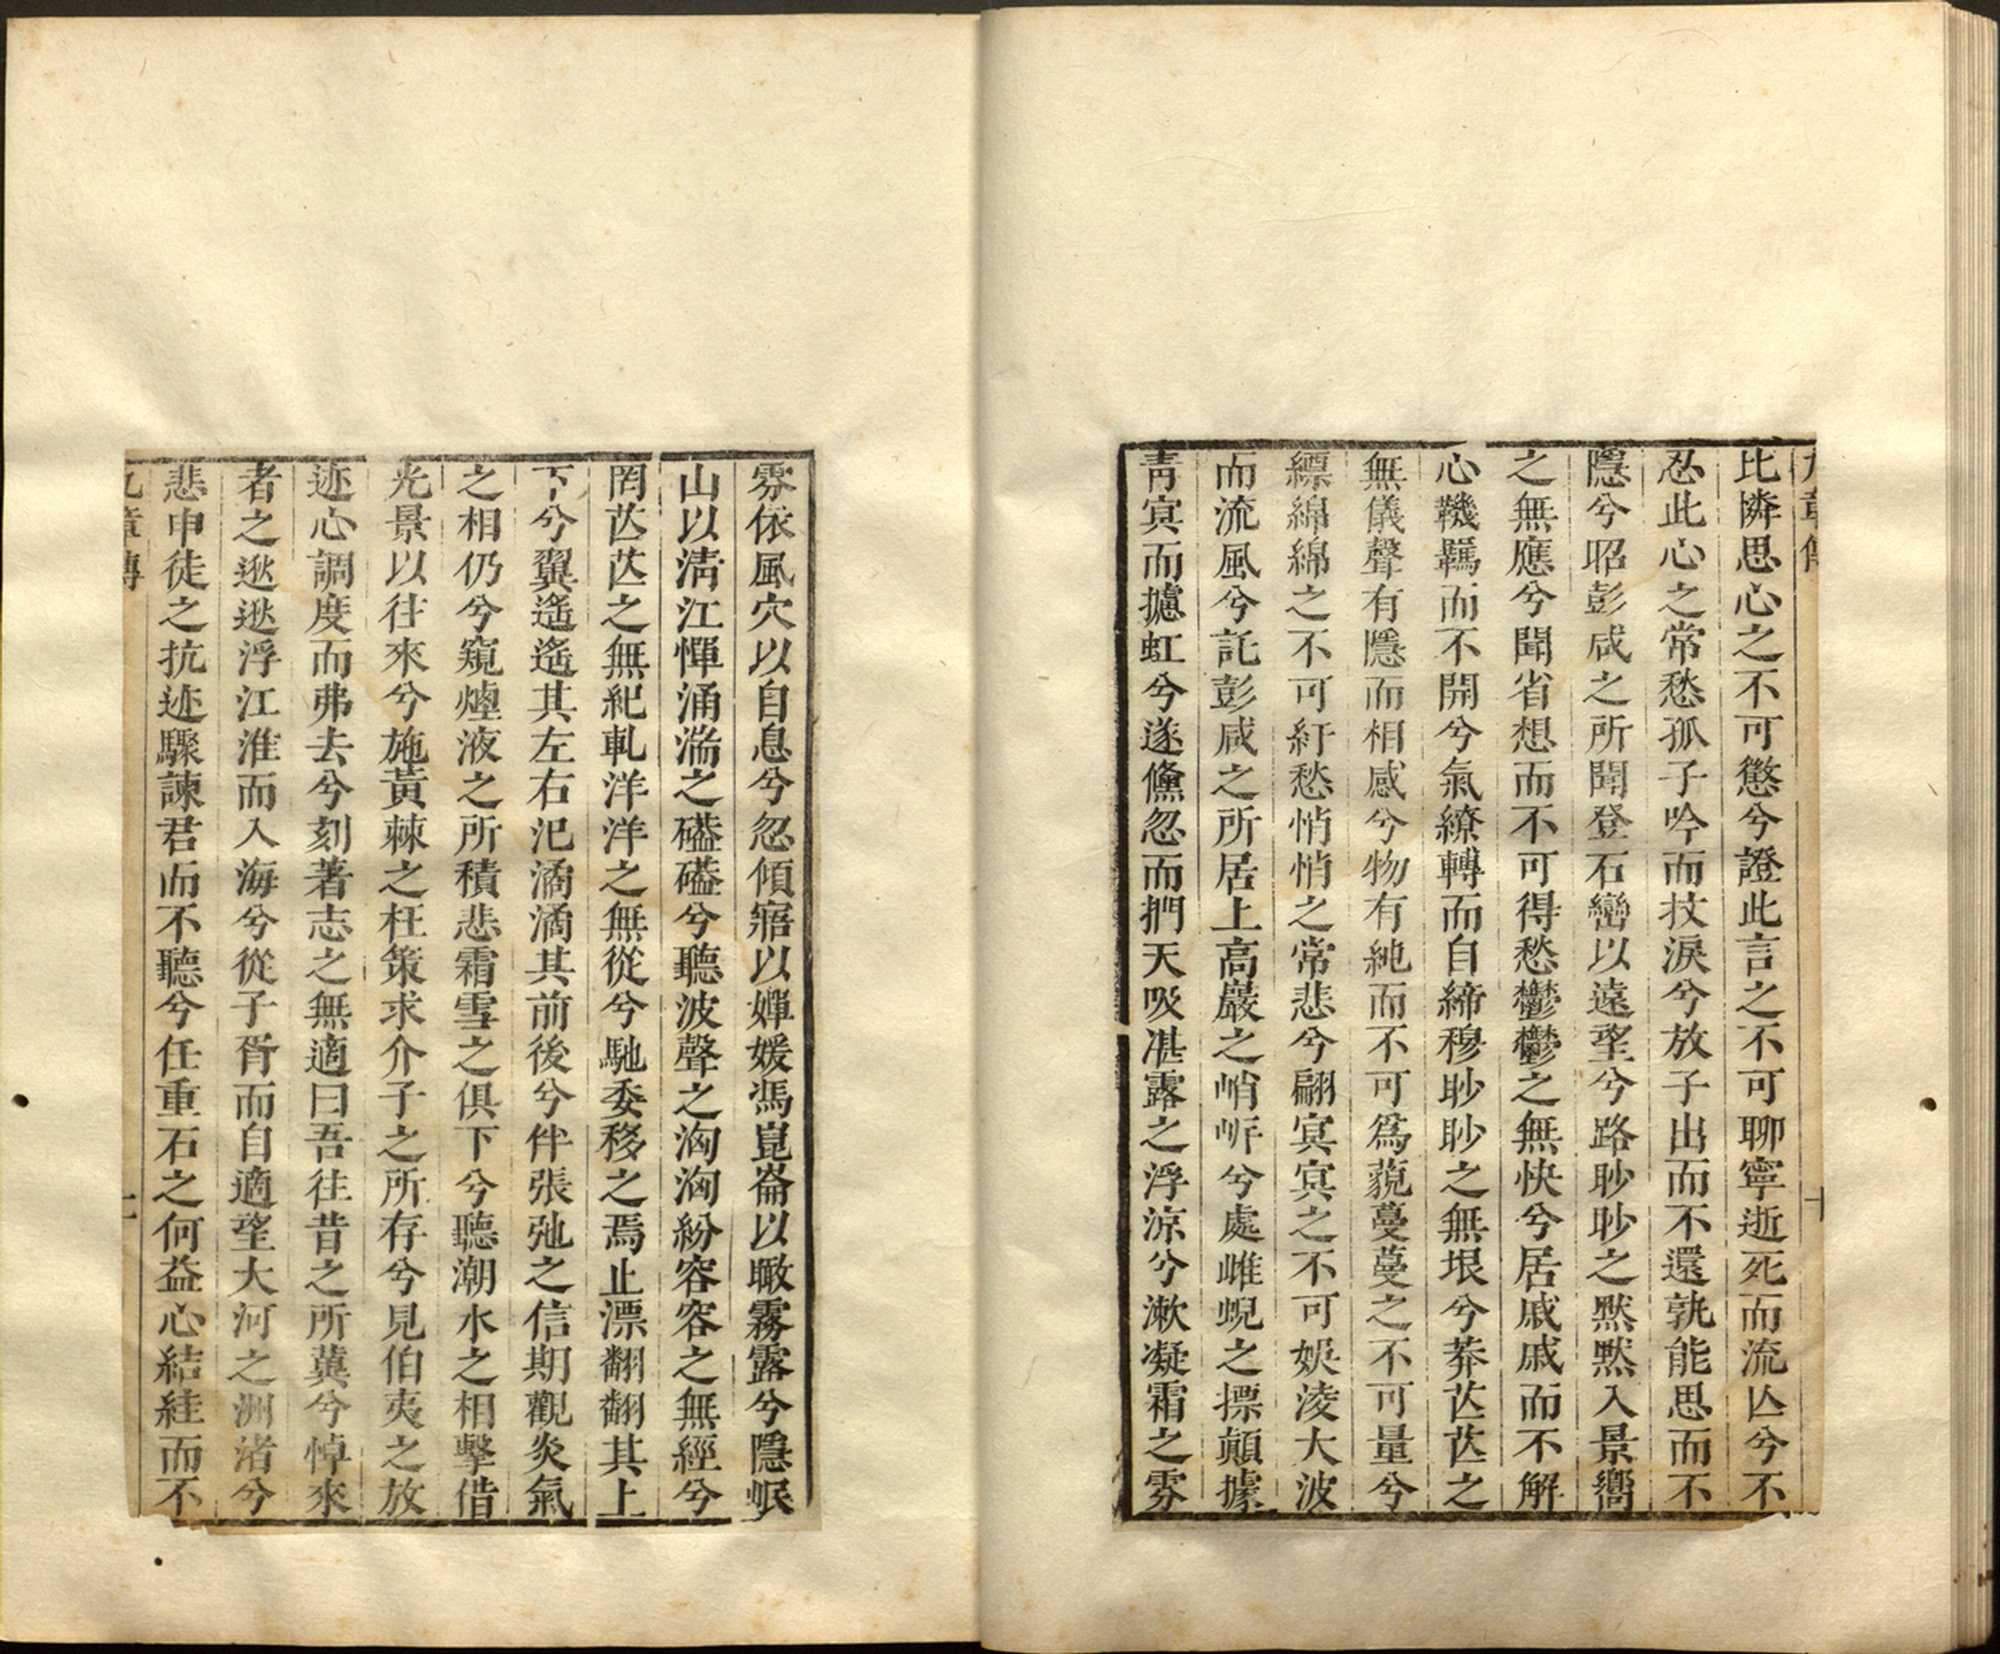 九章傳
比憐思心之不可懲兮證此言之不可聊寧逝死而流亾兮不
忍此心之常愁孤子吟而抆淚兮放子出而不還孰能思而不
隱兮昭彭咸之所聞登石巒以遠望兮路眇眇之默默入景嚮
之無應兮聞省想而不可得愁鬱鬱之無快兮居戚戚而不解
心鞿羈而不開兮氣繚轉而自締穆眇眇之無垠兮莽芒芒之
無儀聲有隱而相感兮物有純而不可為藐蔓蔓之不可量兮
縹綿綿之不可紆愁悄悄之常悲兮翩冥冥之不可娛淩大波
而流風兮託彭咸之所居上高巖之峭岓兮處雌蜺之摽顛據
青冥而攄虹兮遂儵忽而捫天吸湛露之浮涼兮漱凝霜之雰
十
雰依風穴以自息兮忽傾寤以嬋媛馮崑崙以瞰霧露兮隱岷
山以清江憚涌湍之礚礚兮聽波聲之洶洶紛容容之無經兮
罔芒芒之無紀軋洋洋之無從兮馳委移之焉止漂翻翻其上
下兮翼遙遙其左右氾潏潏其前後兮伴張弛之信期觀炎氣
之相仍兮窺煙液之所積悲霜雪之俱下兮聽潮水之相擊借
光景以往來兮施黃棘之枉策求介子之所存兮見伯夷之放
迹心調度而弗去兮刻著志之無適曰吾往昔之所冀兮悼來
者之逖逖浮江淮而入海兮從子胥而自適望大河之洲渚兮
悲申徒之抗迹驟諫君而不聽兮任重石之何益心結絓而不
九章傳